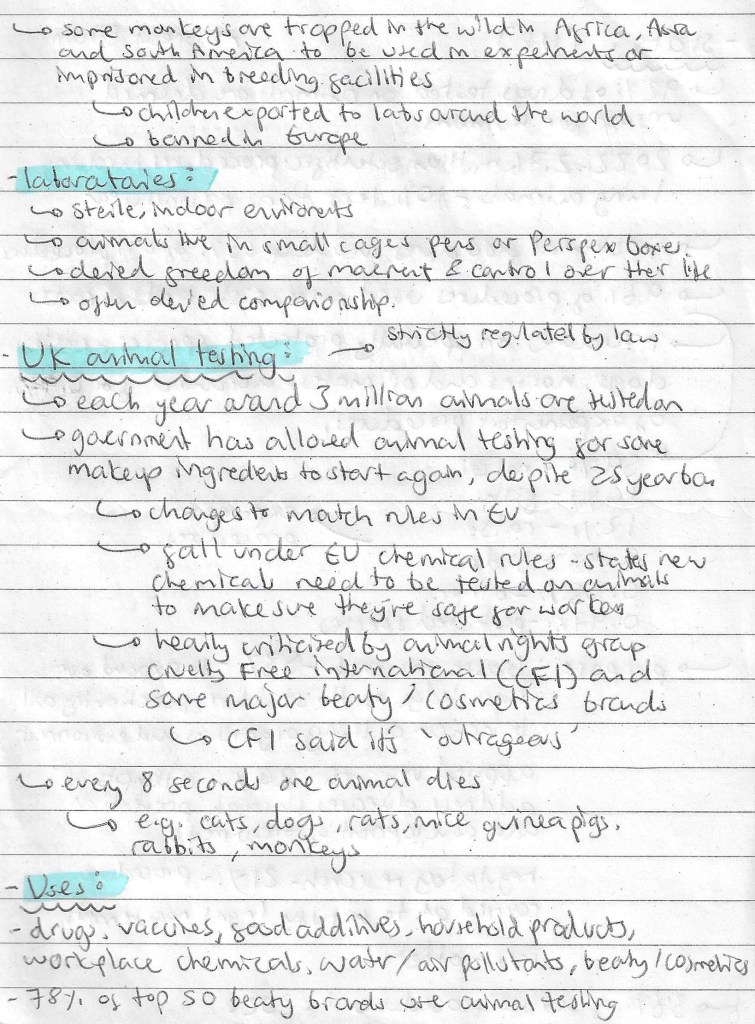 ↳ some monkeys are trapped in the wild in Africa, Asia
and South America to be used in expeiments or
imprisoned in breeding facilities
↳ children exported to labs around the world
↳ banned in Europe
- laboratories:
↳ sterile, indoor enviroments
↳ animals live in small cages, pens or Perspex boxes.
↳ denied freedom of movement & control over their life
↳ often denied companionship.
- UK animal testing: → strictly regulated by law
↳ each year around 3 million animals are tested on
↳ government has allowed animal testing for some
makeup ingredients to start again, despite 25 year ban
↳ changes to match rules in EU
↳ fall under EU chemical rules - states new
chemicals need to be tested on animals
to make sure they're safe for workers
↳ heavily criticized by animal rights group
Cruelty Free international (CFI) and
some major beaty / cosmetics brands
↳ CFI said its 'outrageous'
↳ every 8 seconds one animal dies
↳ e.g. cats, dogs, rats, mice, guinea pigs,
rabbits, monkeys
- Uses:
- drugs, vaccines, food additives, household products,
workplace chemicals, water / air pollutants, beaty / cosmetics
- 78% of top 50 beaty brands use animal testing